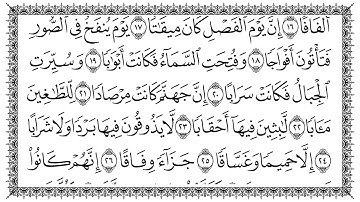 أَلْفَافًا ١٦ إِنَّ يَوْمَ ٱلْفَصْلِ كَانَ مِيقَٰتًا ١٧ يَوْمَ يُنفَخُ فِي ٱلصُّورِ
فَتَأْتُونَ أَفْوَاجًا ١٨ وَفُتِحَتِ ٱلسَّمَآءُ فَكَانَتْ أَبْوَٰبًا ١٩ وَسُيِّرَتِ
ٱلْجِبَالُ فَكَانَتْ سَرَابًا ٢٠ إِنَّ جَهَنَّمَ كَانَتْ مِرْصَادًا ٢١ لِّلطَّٰغِينَ
مَـَٔابًا ٢٢ لَّٰبِثِينَ فِيهَآ أَحْقَابًا ٢٣ لَّا يَذُوقُونَ فِيهَا بَرْدًا وَلَا شَرَابًا
٢٤ إِلَّا حَمِيمًا وَغَسَّاقًا ٢٥ جَزَآءً وِفَاقًا ٢٦ إِنَّهُمْ كَانُوا۟